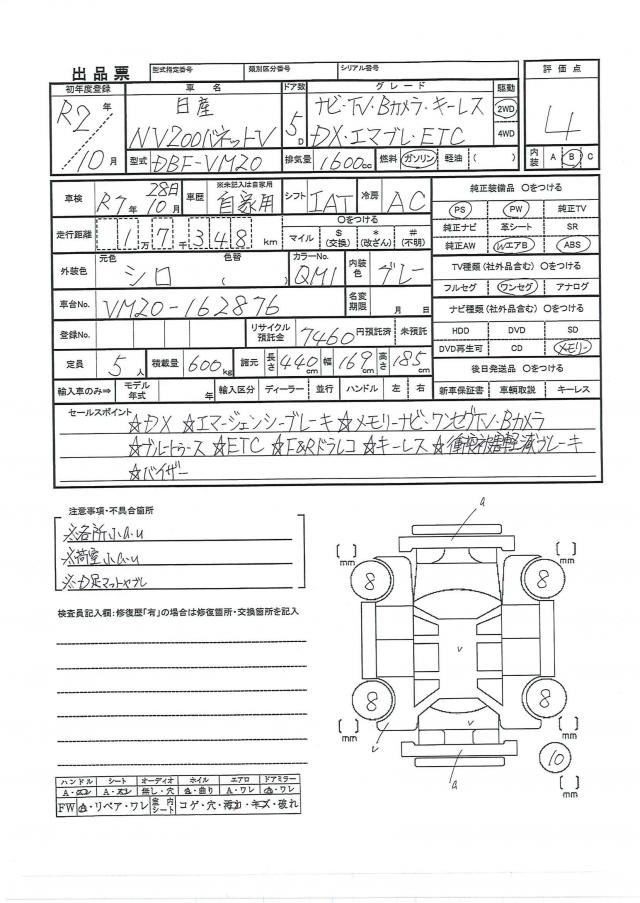 出品票 型式指定番号 類別区分番号 シリアル番号
初年度登録 車名 ドア数 グレード 駆動 評価点
R2年 日産 5D ナビ・TV・Bカメラ・キーレス 2WD 4
/10月 NV200バネットV DX・エマブレ・ETC 4WD
型式 DBF-VM20 排気量 1600cc 燃料 ガソリン 軽油 ( ) 内装 A B C
車検 R7年 10月 28日 車歴 ※未記入は自家用 自家用 シフト IAT 冷房 AC 純正装備品 〇をつける
PS PW 純正TV
走行距離 1万7千348km 〇をつける マイル $(交換) *(改ざん) #(不明) 純正ナビ 革シート SR
純正AW WエアB ABS
外装色 元色 シロ 色替 ( ) カラーNo. QM1 内装色 グレー TV種類(社外品含む) 〇をつける
フルセグ ワンセグ アナログ
車台No. VM20-162876 名変期限 月 日 ナビ種類(社外品含む) 〇をつける
登録No. リサイクル預託金 7460円預託済 未預託 HDD DVD SD
DVD再生可 CD メモリー
定員 5人 積載量 600kg 諸元 長さ 440cm 幅 169cm 高さ 185cm 後日発送品 〇をつける
輸入車のみ⇒ モデル年式 年 輸入区分 ディーラー 並行 ハンドル 左 右 新車保証書 車輌取説 キーレス
セールスポイント
☆DX ☆エマージェンシーブレーキ ☆メモリーナビ・ワンセグTV・Bカメラ
☆ブルートゥース ☆ETC ☆F&Rドラレコ ☆キーレス ☆衝突被害軽減ブレーキ
☆バイザー
注意事項・不具合箇所
※各所小a・u
※荷室小a・u
※D足マットヤブレ
検査員記入欄:修復歴「有」の場合は修復箇所・交換箇所を記入
a
[ ] mm 8 8 [ ] mm
v
8 v 8
[ ] mm v a [ ] mm
10
[ ] mm
ハンドル シート オーディオ ホイル エアロ ドアミラー
A・ A・ 無し・穴 ・曲り A・ワレ ・ワレ
FW ・リペア・ワレ 室内シート コゲ・穴・汚れ・キズ・破れ